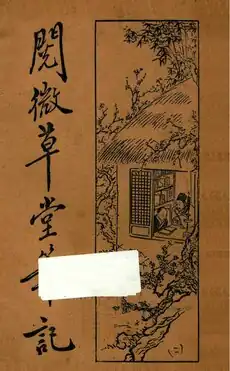 閱微草堂筆記
(二)